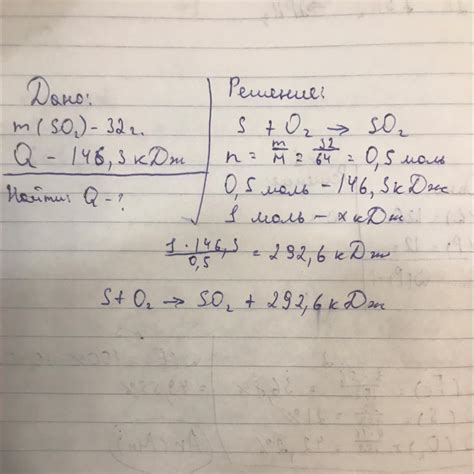 Дано:
m(SO₂) - 32г.
Q - 146,3 кДж
Найти: Q - ?
Решение:
S + O₂ → SO₂
n = m/M = 32/64 = 0,5 моль
0,5 моль - 146,3 кДж
1 моль - x кДж
1 · 146,3/0,5 = 292,6 кДж
S + O₂ → SO₂ + 292,6 кДж